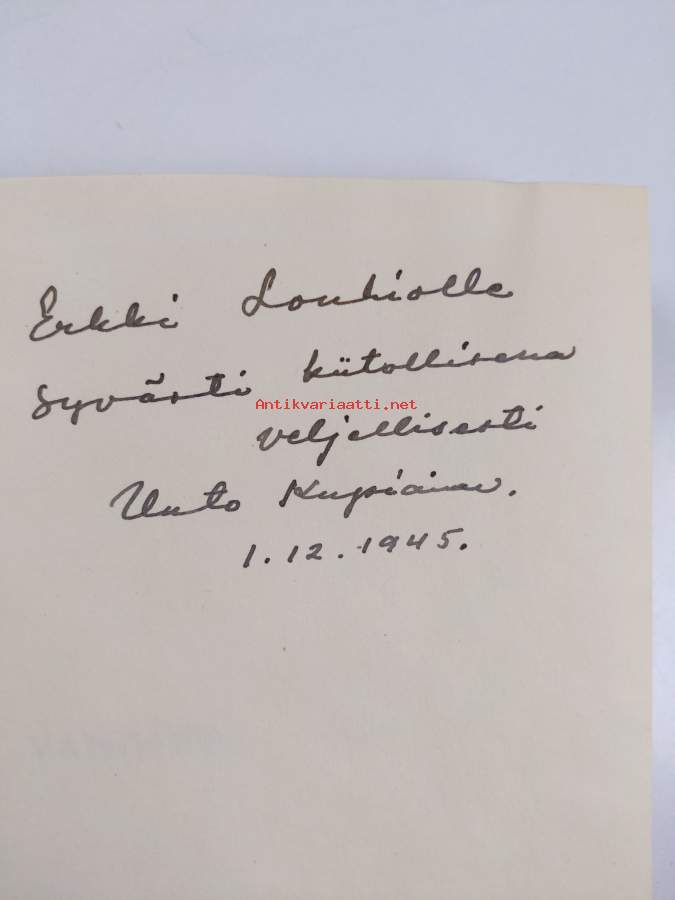 Erkki Louhiolle
syvästi kiitollisena
Antikvariaatti.net
veljellisesti
Unto Kupiainen.
1.12.1945.